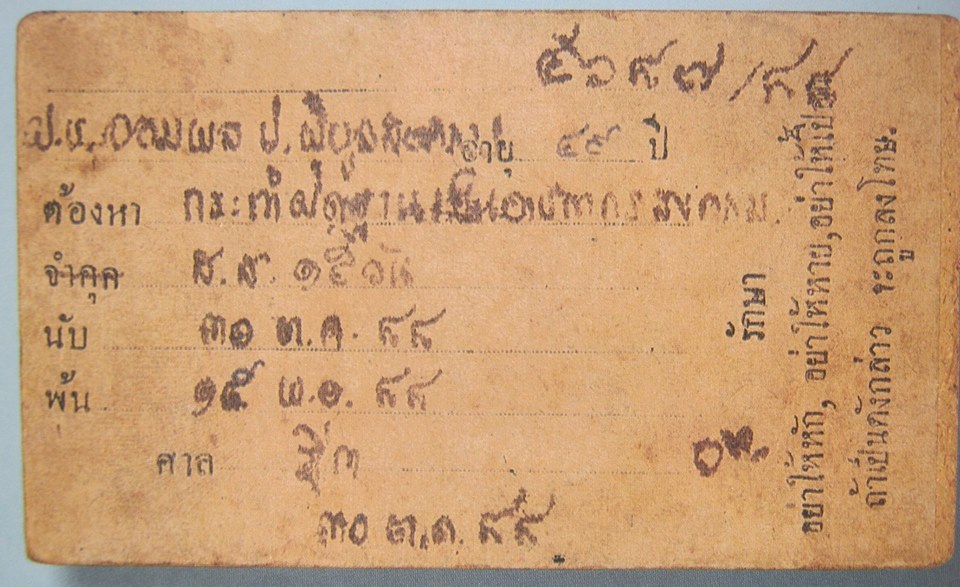 ๕๖๘๗/๘๘
จอมพล ป. พิบูลสงคราม อายุ ๔๙ ปี
ต้องหา กระทำผิดฐานเป็นอาชญากรสงคราม
จำคุก ๑๕ วัน
นับ ๓๑ ต.ค. ๘๘
พ้น ๑๕ พ.ย. ๘๘
ศาล ฎีกา
๓๐ ต.ค. ๘๘
รักษา
อย่าให้หัก, อย่าให้หาย, อย่าให้น้ำเปียก
ถ้าเป็นดังกล่าว จะถูกลงโทษ.